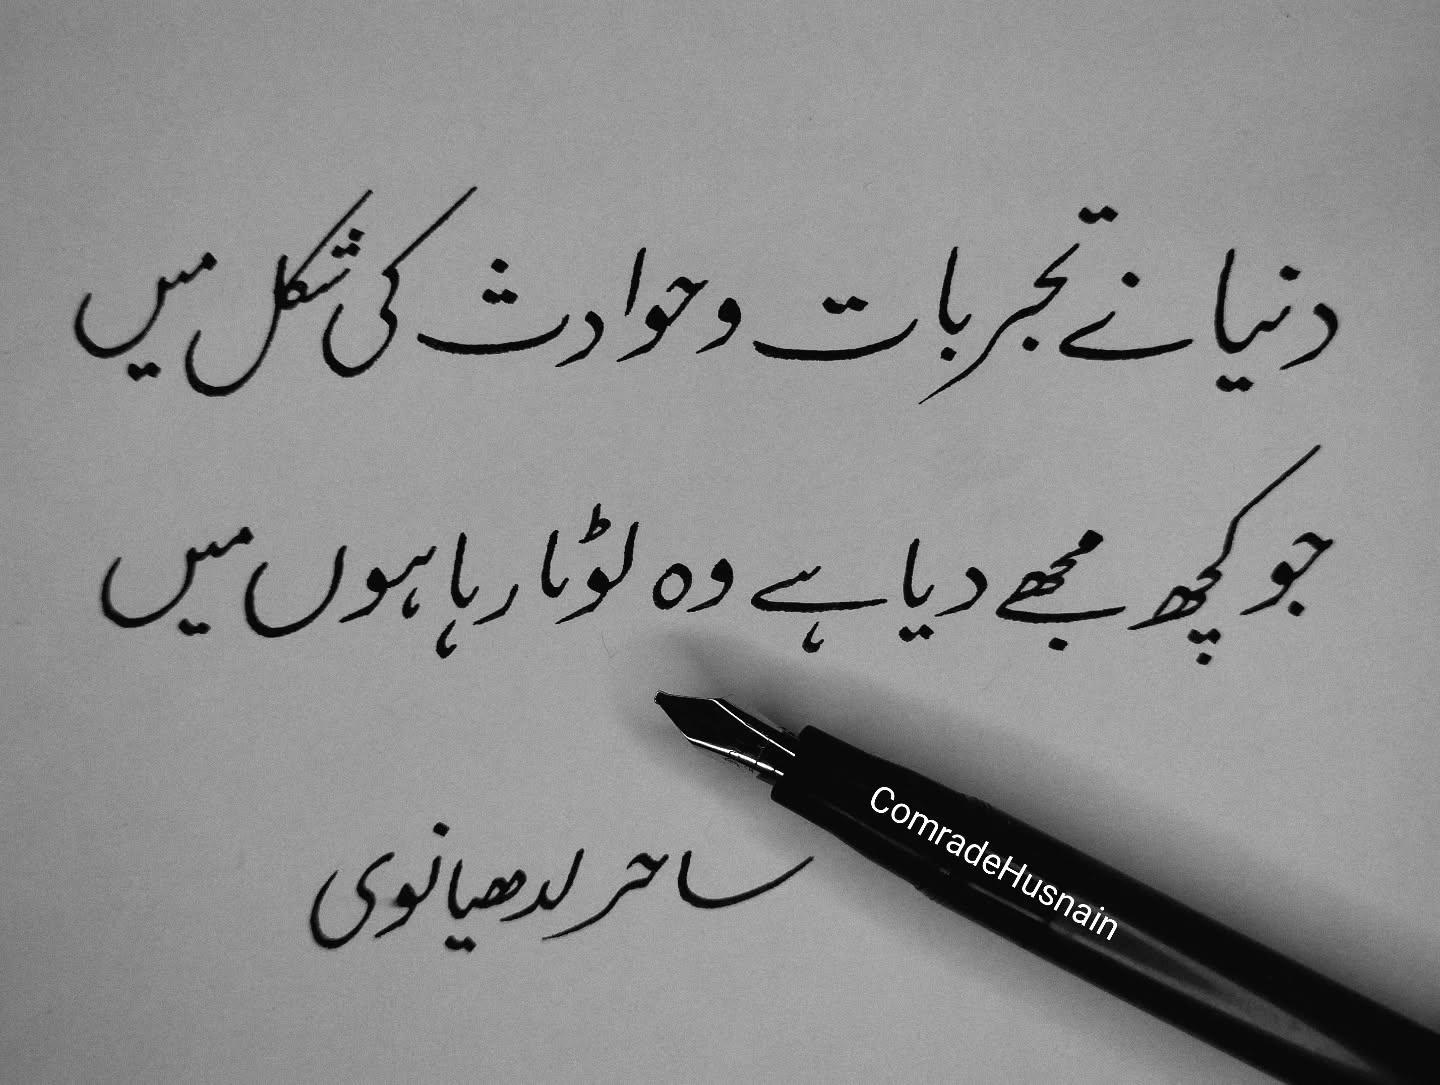 دنیا نے تجربات و حوادث کی شکل میں
جو کچھ مجھے دیا ہے وہ لوٹا رہا ہوں میں
ساحر لدھیانوی
ComradeHusnain